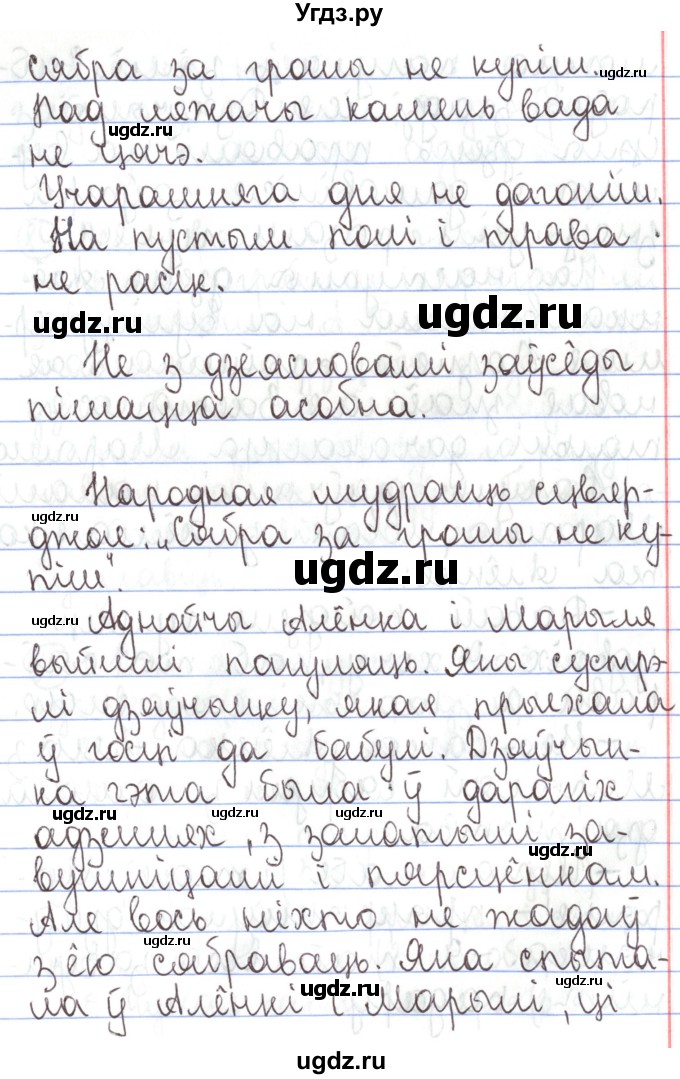 Угдз.ру
сябра за грошы не купіш. ugdz.ru
Пад ляжачы камень вада
ugdz.ru
не цячэ.
Учарашняга дня не дагоніш.
На пустым полі і трава
не расце.
ugdz.ru ugdz.ru
Не з дзеясловамі заўсёды
пішацца асобна.
Народная мудрасць сцвяр-
ugdz.ru
джае: „Сябра за грошы не ку-
піш".
ugdz.ru
ugdz.ru Аднойчы Алёнка і Марыля
выйшлі пагуляць. Яны сустрэ
лі дзяўчынку, якая прыехала
ў госці да бабулі. Дзяўчын-
ка гэта была ў дарагіх
ugdz.ru ugdz.ru ugdz.ru
адзеннях, з залатымі за-
ugdz.ru
вушніцамі і пярсцёнкам.
Але вось ніхто не жадаў
ugdz.ru
з ёю сябраваць. Яна спыта-
ugdz.ru
ла ў Алёнкі і Марылі, ці
ugdz.ru